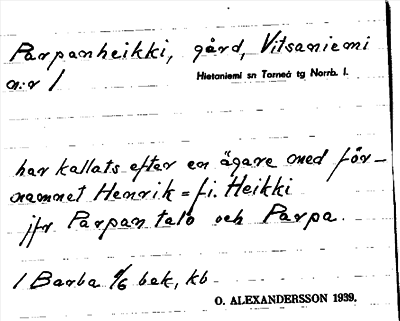 Parpanheikki, gård, Vitsaniemi
n:r 1
Hietaniemi sn Torneå tg Norrb. l.
har kallats efter en ägare med för-
namnet Henrik = fi. Heikki
jfr Parpan talo och Parpa.
1 Barba 9/6 bak, kb
O. ALEXANDERSSON 1939.